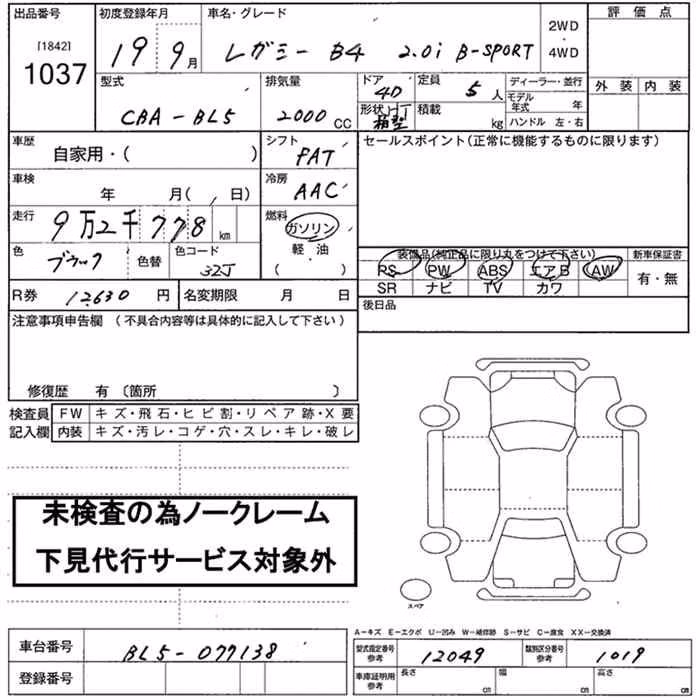 出品番号 初度登録年月 車名・グレード 評価点
[1842] 1037 19年 9月 レガシー B4 2.0i B-SPORT 2WD・4WD
外装 内装
型式 排気量 ドア 4D 定員 5人 ディーラー・並行
CBA-BL5 2000 CC 形状 箱型 積載 kg モデル年式 年
ハンドル 左・右
車歴 自家用・( ) シフト FAT セールスポイント(正常に機能するものに限ります)
車検 年 月( 日) 冷房 AAC
走行 9万2千778 km 燃料 ガソリン
軽・油
( )
色 ブラック 色替 色コード 32J
装備品(純正品に限り丸をつけて下さい) 新車保証書
PS PW ABS エアB AW 有・無
SR ナビ TV カワ
R券 12630 円 名変期限 月 日 後日品
注意事項申告欄 (不具合内容等は具体的に記入して下さい)
修復歴 有 〔箇所 〕
検査員 FW キズ・飛石・ヒビ割・リペア跡・X要
記入欄 内装 キズ・汚レ・コゲ・穴・スレ・キレ・破レ
未検査の為ノークレーム
下見代行サービス対象外
スペア
A-キズ E-エクボ U-凹み W-補修跡 S-サビ C-腐食 XX-交換済
車台番号 BL5-077138 型式指定番号 参考 12049 類別区分番号 参考 1019
登録番号 車庫証明用 参考 長さ cm 幅 cm 高さ cm